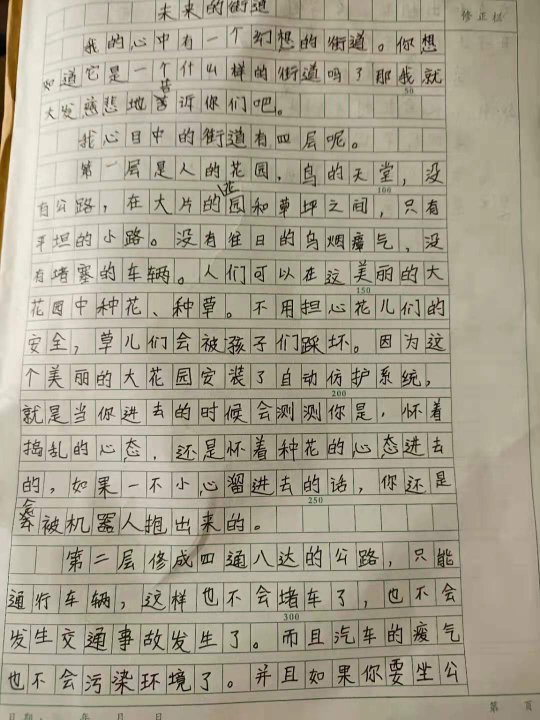 未来的街道
我的心中有一个幻想的街道。你想
知道它是一个什么样的街道吗？那我就
大发慈悲地告诉你们吧。
50
我心目中的街道有四层呢。
第一层是人的花园，鸟的天堂，没
100
有公路，在大片的花园和草坪之间，只有
平坦的小路。没有往日的乌烟瘴气，没
有堵塞的车辆。人们可以在这美丽的大
150
花园中种花、种草。不用担心花儿们的
安全，草儿们会被孩子们踩坏。因为这
个美丽的大花园安装了自动仿护系统，
200
就是当你进去的时候会测测你是，怀着
捣乱的心态，还是怀着种花的心态进去
的，如果一不小心溜进去的话，你还是
250
会被机器人抱出来的。
第二层修成四通八达的公路，只能
通行车辆，这样也不会堵车了，也不会
300
发生交通事故发生了。而且汽车的废气
也不会污染环境了。并且如果你要坐公
修正栏
日期： 年 月 日
第 页